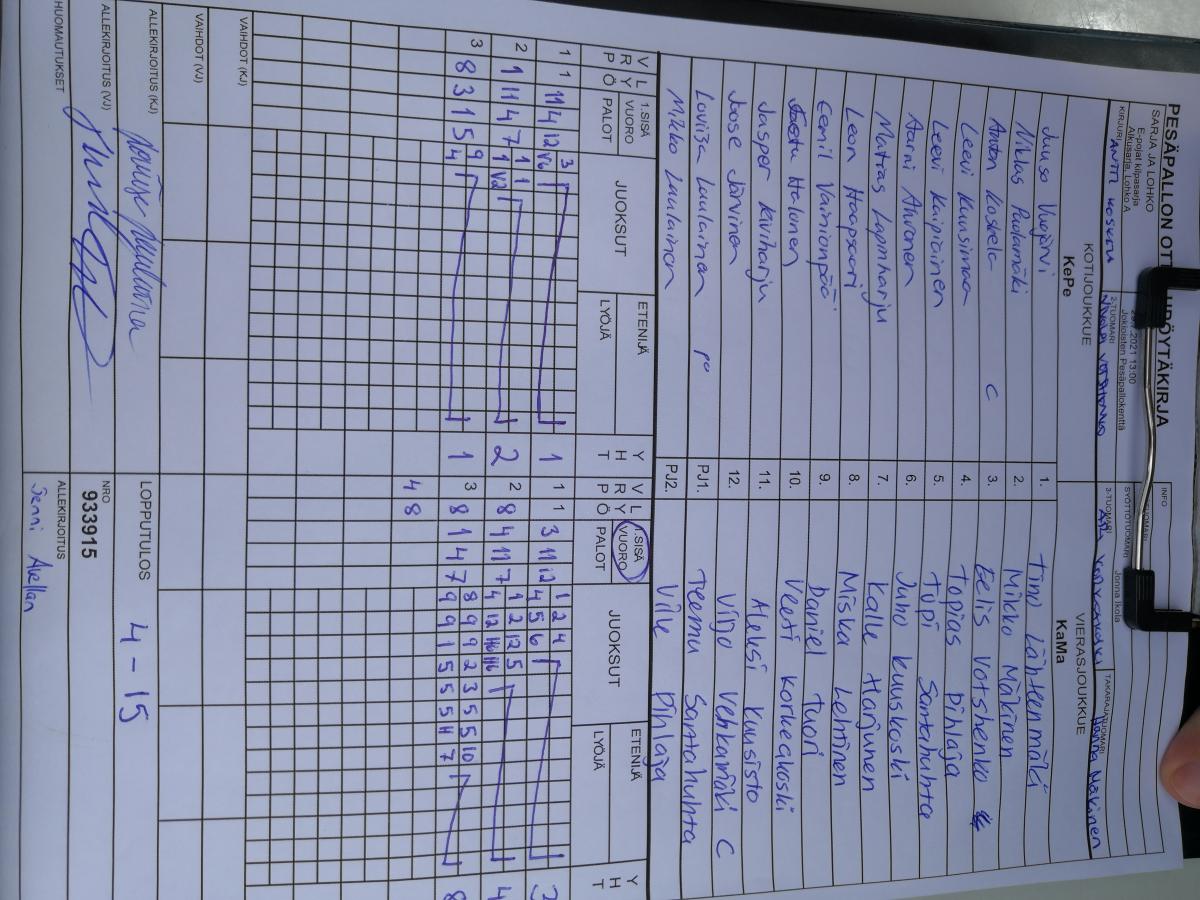 PESÄPALLON OTT
PÖYTÄKIRJA
SARJA JA LOHKO
E-pojat kilpasarja
Alkusarja, Lohko A
2021 13:00
Jokioisten Pesäpallokenttä
INFO
KIRJURI
2-TUOMARI
SYÖTTÖTUOMARI
Jonna Ikola
3-TUOMARI
TAKARAJATUOMARI
Hanna Mäkinen
KOTIJOUKKUE
VIERASJOUKKUE
KePe
KaMa
Juuso Vuojärvi 1. Timo Lähteenmäki
Niklas Puulamäki 2. Mikko Mäkinen
Anton Koskela C 3. Eelis Votshenko
Leevi Kuusinna 4. Topias Pihlaja
Leevi Kaipiainen 5. Tupi Santahuhta
Aarni Ahronen 6. Juho Kuuskoski
Matias Lapinharju 7. Kalle Harjunen
Leon Haapasaari 8. Miska Lehtinen
Eemil Vainionpää 9. Daniel Tuori
Halonen 10. Veeti Korkeakoski
Jasper Kiviharju 11. Aleksi Kuusisto
Joose Järvinen 12. Viljo Vehkamäki C
Loviisa Luulainen PJ1. Teemu Santahuhta
Mikko Luulainen PJ2. Ville Pihlaja
V R P L Y Ö 1.SISÄ VUORO PALOT JUOKSUT ETENIJÄ LYÖJÄ Y H T
V R P L Y Ö 1.SISÄ VUORO PALOT JUOKSUT ETENIJÄ LYÖJÄ Y H T
1 1 11 4 12 3 V6 1
1 1 3 11 12 1 2 4 4 5 6 3
2 1 11 4 7 1 1 1 V2 2
2 8 4 11 7 1 2 12 5 4 12 H6 H6 4
3 8 3 1 5 9 4 1
3 8 1 4 7 8 9 9 2 3 5 10 9 9 1 5 5 5 11 7 8
4 8
VAIHDOT (KJ)
VAIHDOT (VJ)
ALLEKIRJOITUS (KJ)
LOPPUTULOS 4 - 15
ALLEKIRJOITUS (VJ)
NRO
933915
HUOMAUTUKSET
ALLEKIRJOITUS
Jenni Avellan